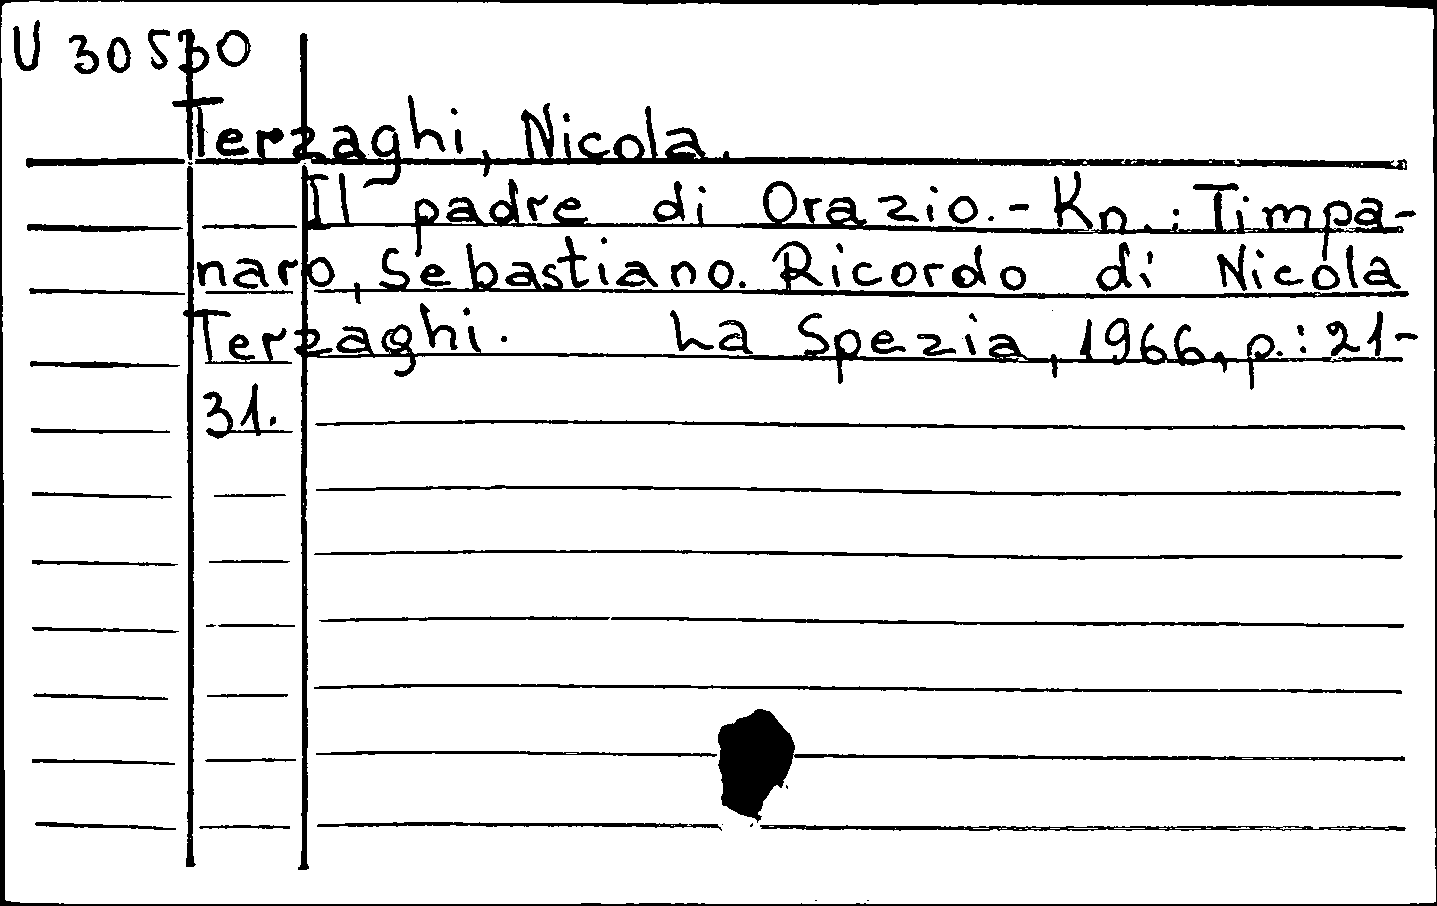 U 30530
Terzaghi, Nicola.
Il padre di Orazio.- Kn.: Timpa-
naro, Sebastiano. Ricordo di Nicola
Terzaghi. La Spezia, 1966, p.: 21-
31.